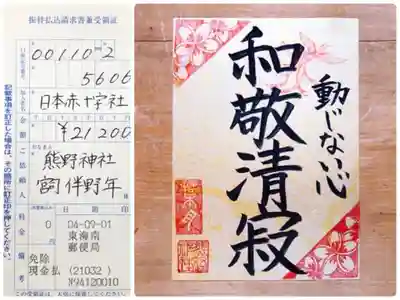 振替払込請求書兼受領証
00110 2
5606
日本赤十字社
¥21200
熊野神社
宮司 伴野 年 様
0
04-09-01
東海南
郵便局
免除
現金払 (21032)
N94120010
記載事項を訂正した場合は、その箇所に訂正印を押してください。
動じない心
和敬清寂